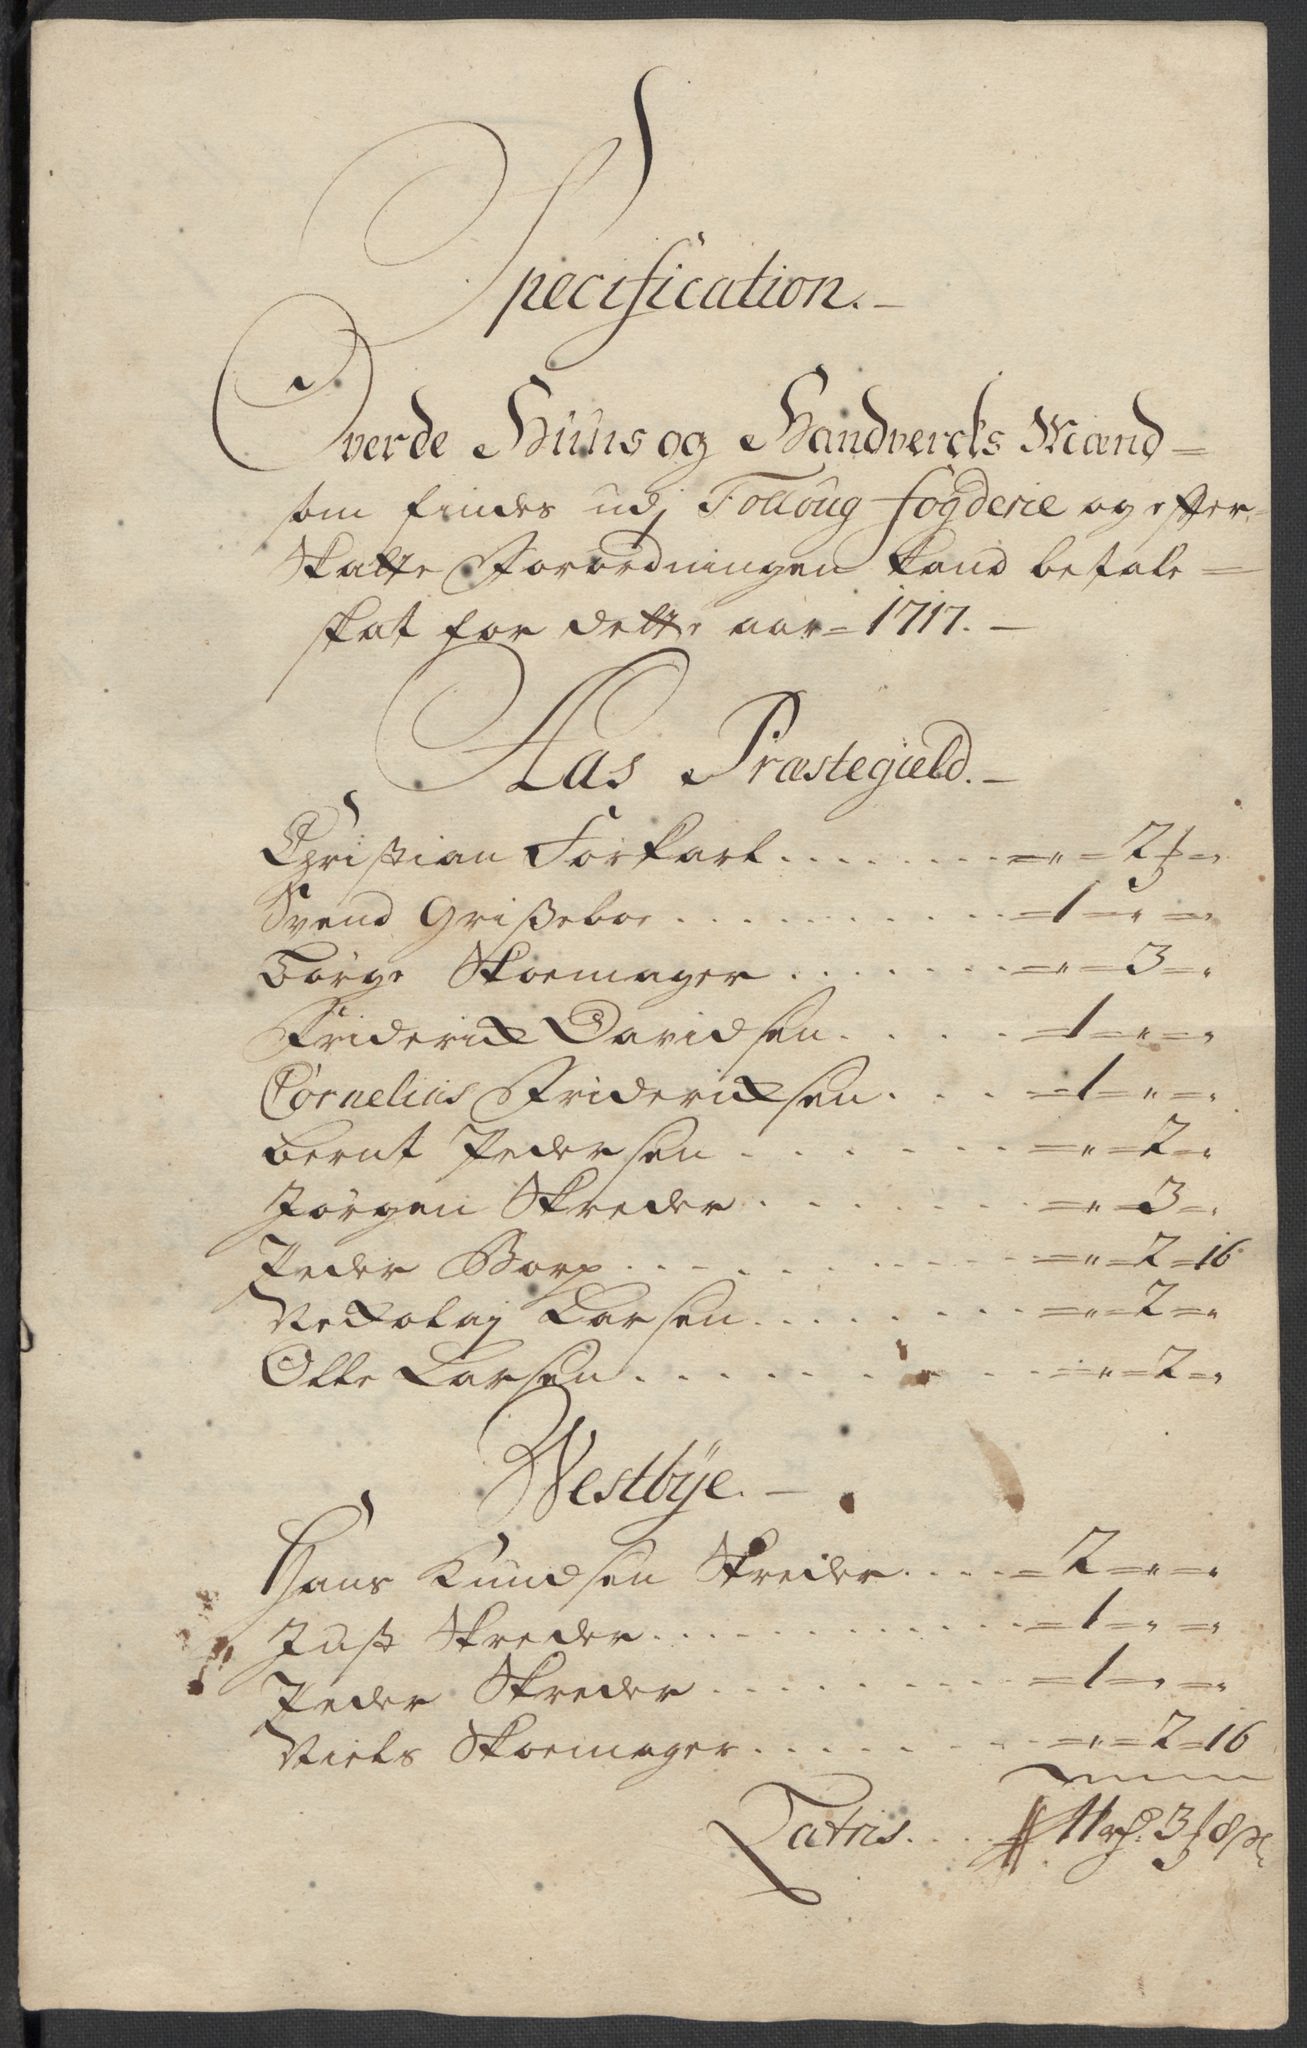 Specification. –
Over de Huus og Handvercks Mænd =
som findes udj Folloug fogderie og efter =
Skatte Forordningen kand betale =
skat for dette aar = 1717. –
Aas Præstegield. –
Christian Forkarl . . . . . . . . = " = 2 ƒ = "
Svend Grißeboe . . . . . . . . . . . = 1 = " = "
Børge Skoemager . . . . . . . = " = 3 = "
Friderix Davidsen . . . . = 1 = " = "
Cornelius Fridericksen . . . = 1 = " = "
Bernt Pedersen . . . . . . . = " = 2 = "
Jørgen Skreder . . . . . . . = " = 3 = "
Peder Borp . . . . . . . . . = " = 2 = 16
Nickolaj Larsen . . . . . . . = " = 2 = "
Olle Larsen . . . . . . . . . = " = 2 = "
Westbÿe. –
Hans Knudsen Skreder . . . . = 2 = " = "
Just Skreder . . . . . . . . . . . = 1 = " = "
Peder Skreder . . . . . . . . . = 1 = " = "
Niels Skoemager . . . . . . . . = " = 2 = 16
Latris. . . . 11 rd. 3 ƒ 8 s